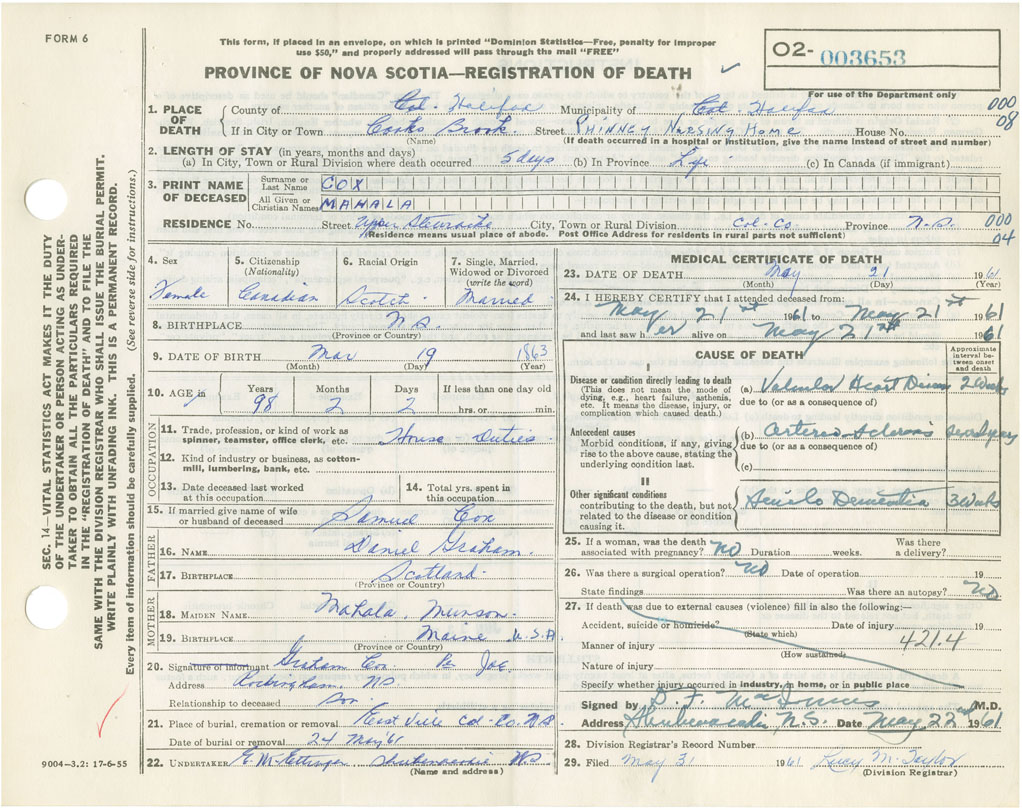 FORM 6
This form, if placed in an envelope, on which is printed "Dominion Statistics—Free, penalty for improper
use $50," and properly addressed will pass through the mail "FREE"
PROVINCE OF NOVA SCOTIA—REGISTRATION OF DEATH
O2- 003653
For use of the Department only
1. PLACE OF DEATH
County of Col - Halifax Municipality of Col - Halifax 000
If in City or Town Cooks Brook. Street PHINNEY NURSING HOME House No. 08
(Name) (If death occurred in a hospital or institution, give the name instead of street and number)
2. LENGTH OF STAY (in years, months and days)
(a) In City, Town or Rural Division where death occurred 5 days (b) In Province Life (c) In Canada (if immigrant)
3. PRINT NAME OF DECEASED
Surname or Last Name COX
All Given or Christian Names MAHALA
RESIDENCE No. Street Upper Stewiacke City, Town or Rural Division Col-Co Province N.S. 000
(Residence means usual place of abode. Post Office Address for residents in rural parts not sufficient) 04
4. Sex Female
5. Citizenship (Nationality) Canadian
6. Racial Origin Scotch
7. Single, Married, Widowed or Divorced (write the word) Married
8. BIRTHPLACE N S.
(Province or Country)
9. DATE OF BIRTH Mar 19 1863
(Month) (Day) (Year)
10. AGE in Years 98 Months 2 Days 2 If less than one day old hrs. or min.
OCCUPATION
11. Trade, profession, or kind of work as spinner, teamster, office clerk, etc. House Duties
12. Kind of industry or business, as cotton-mill, lumbering, bank, etc.
13. Date deceased last worked at this occupation
14. Total yrs. spent in this occupation
15. If married give name of wife or husband of deceased Samuel Cox
FATHER
16. NAME Daniel Graham.
17. BIRTHPLACE Scotland
(Province or Country)
MOTHER
18. MAIDEN NAME Mahala Munson
19. BIRTHPLACE Maine U.S.A.
(Province or Country)
20. Signature of informant Graham Cox
Address Rockingham, NS
Relationship to deceased Son
21. Place of burial, cremation or removal East Ville Col-Co N.S
Date of burial or removal 24 May 61
22. UNDERTAKER E McEttinger Shubenacadie N.S.
(Name and address)
MEDICAL CERTIFICATE OF DEATH
23. DATE OF DEATH May 21 1961
(Month) (Day) (Year)
24. I HEREBY CERTIFY that I attended deceased from:
May 21st 1961 to May 21st 1961
and last saw her alive on May 21st 1961
CAUSE OF DEATH
Approximate interval between onset and death
I
Disease or condition directly leading to death
(This does not mean the mode of dying, e.g., heart failure, asthenia, etc. It means the disease, injury, or complication which caused death.)
(a) Valvular Heart Disease 2 Weeks
due to (or as a consequence of)
Antecedent causes
Morbid conditions, if any, giving rise to the above cause, stating the underlying condition last.
(b) Arterio-Sclerosis Several years
due to (or as a consequence of)
(c)
II
Other significant conditions
contributing to the death, but not related to the disease or condition causing it.
Senile Dementia 3 Weeks
25. If a woman, was the death associated with pregnancy? NO Duration weeks. Was there a delivery?
26. Was there a surgical operation? NO Date of operation 19
State findings Was there an autopsy? NO
27. If death was due to external causes (violence) fill in also the following:—
Accident, suicide or homicide? Date of injury 19
(State which)
Manner of injury 421.4
(How sustained)
Nature of injury
Specify whether injury occurred in industry, in home, or in public place
Signed by D. F. MacInnis M.D.
Address Shubenacadie N.S. Date May 22nd 1961
28. Division Registrar's Record Number
29. Filed May 31 1961 Lucy M. Taylor
(Division Registrar)
SEC. 14—VITAL STATISTICS ACT MAKES IT THE DUTY
OF THE UNDERTAKER OR PERSON ACTING AS UNDER-
TAKER TO OBTAIN ALL THE PARTICULARS REQUIRED
IN THE "REGISTRATION OF DEATH" AND TO FILE THE
SAME WITH THE DIVISION REGISTRAR WHO SHALL ISSUE THE BURIAL PERMIT.
WRITE PLAINLY WITH UNFADING INK. THIS IS A PERMANENT RECORD.
Every item of information should be carefully supplied. (See reverse side for instructions.)
9004-3.2: 17-6-55